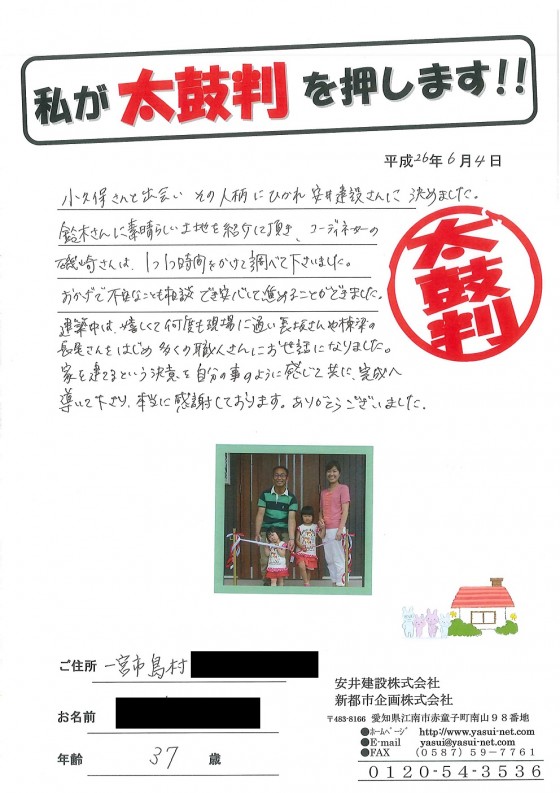 私が太鼓判を押します!!
平成26年6月4日
小久保さんと出会い その人柄にひかれ安井建設さんに決めました。
鈴木さんに素晴らしい土地を紹介して頂き、コーディネーターの
磯崎さんは、1つ1つ時間をかけて調べて下さいました。
おかげで不安なことも相談でき安心して進めることができました。
建築中は、嬉しくて何度も現場に通い長坂さんや棟梁の
長尾さんをはじめ多くの職人さんにお世話になりました。
家を建てるという決意を自分の事のように感じて共に、完成へ
導いて下さり、本当に感謝しております。ありがとうございました。
太鼓判
ご住所 一宮市島村
お名前
年齢 37 歳
安井建設株式会社
新都市企画株式会社
〒483-8166 愛知県江南市赤童子町南山98番地
●ホームページ http://www.yasui-net.com
●E-mail yasui@yasui-net.com
●FAX (0587)59-7761
0120-54-3536